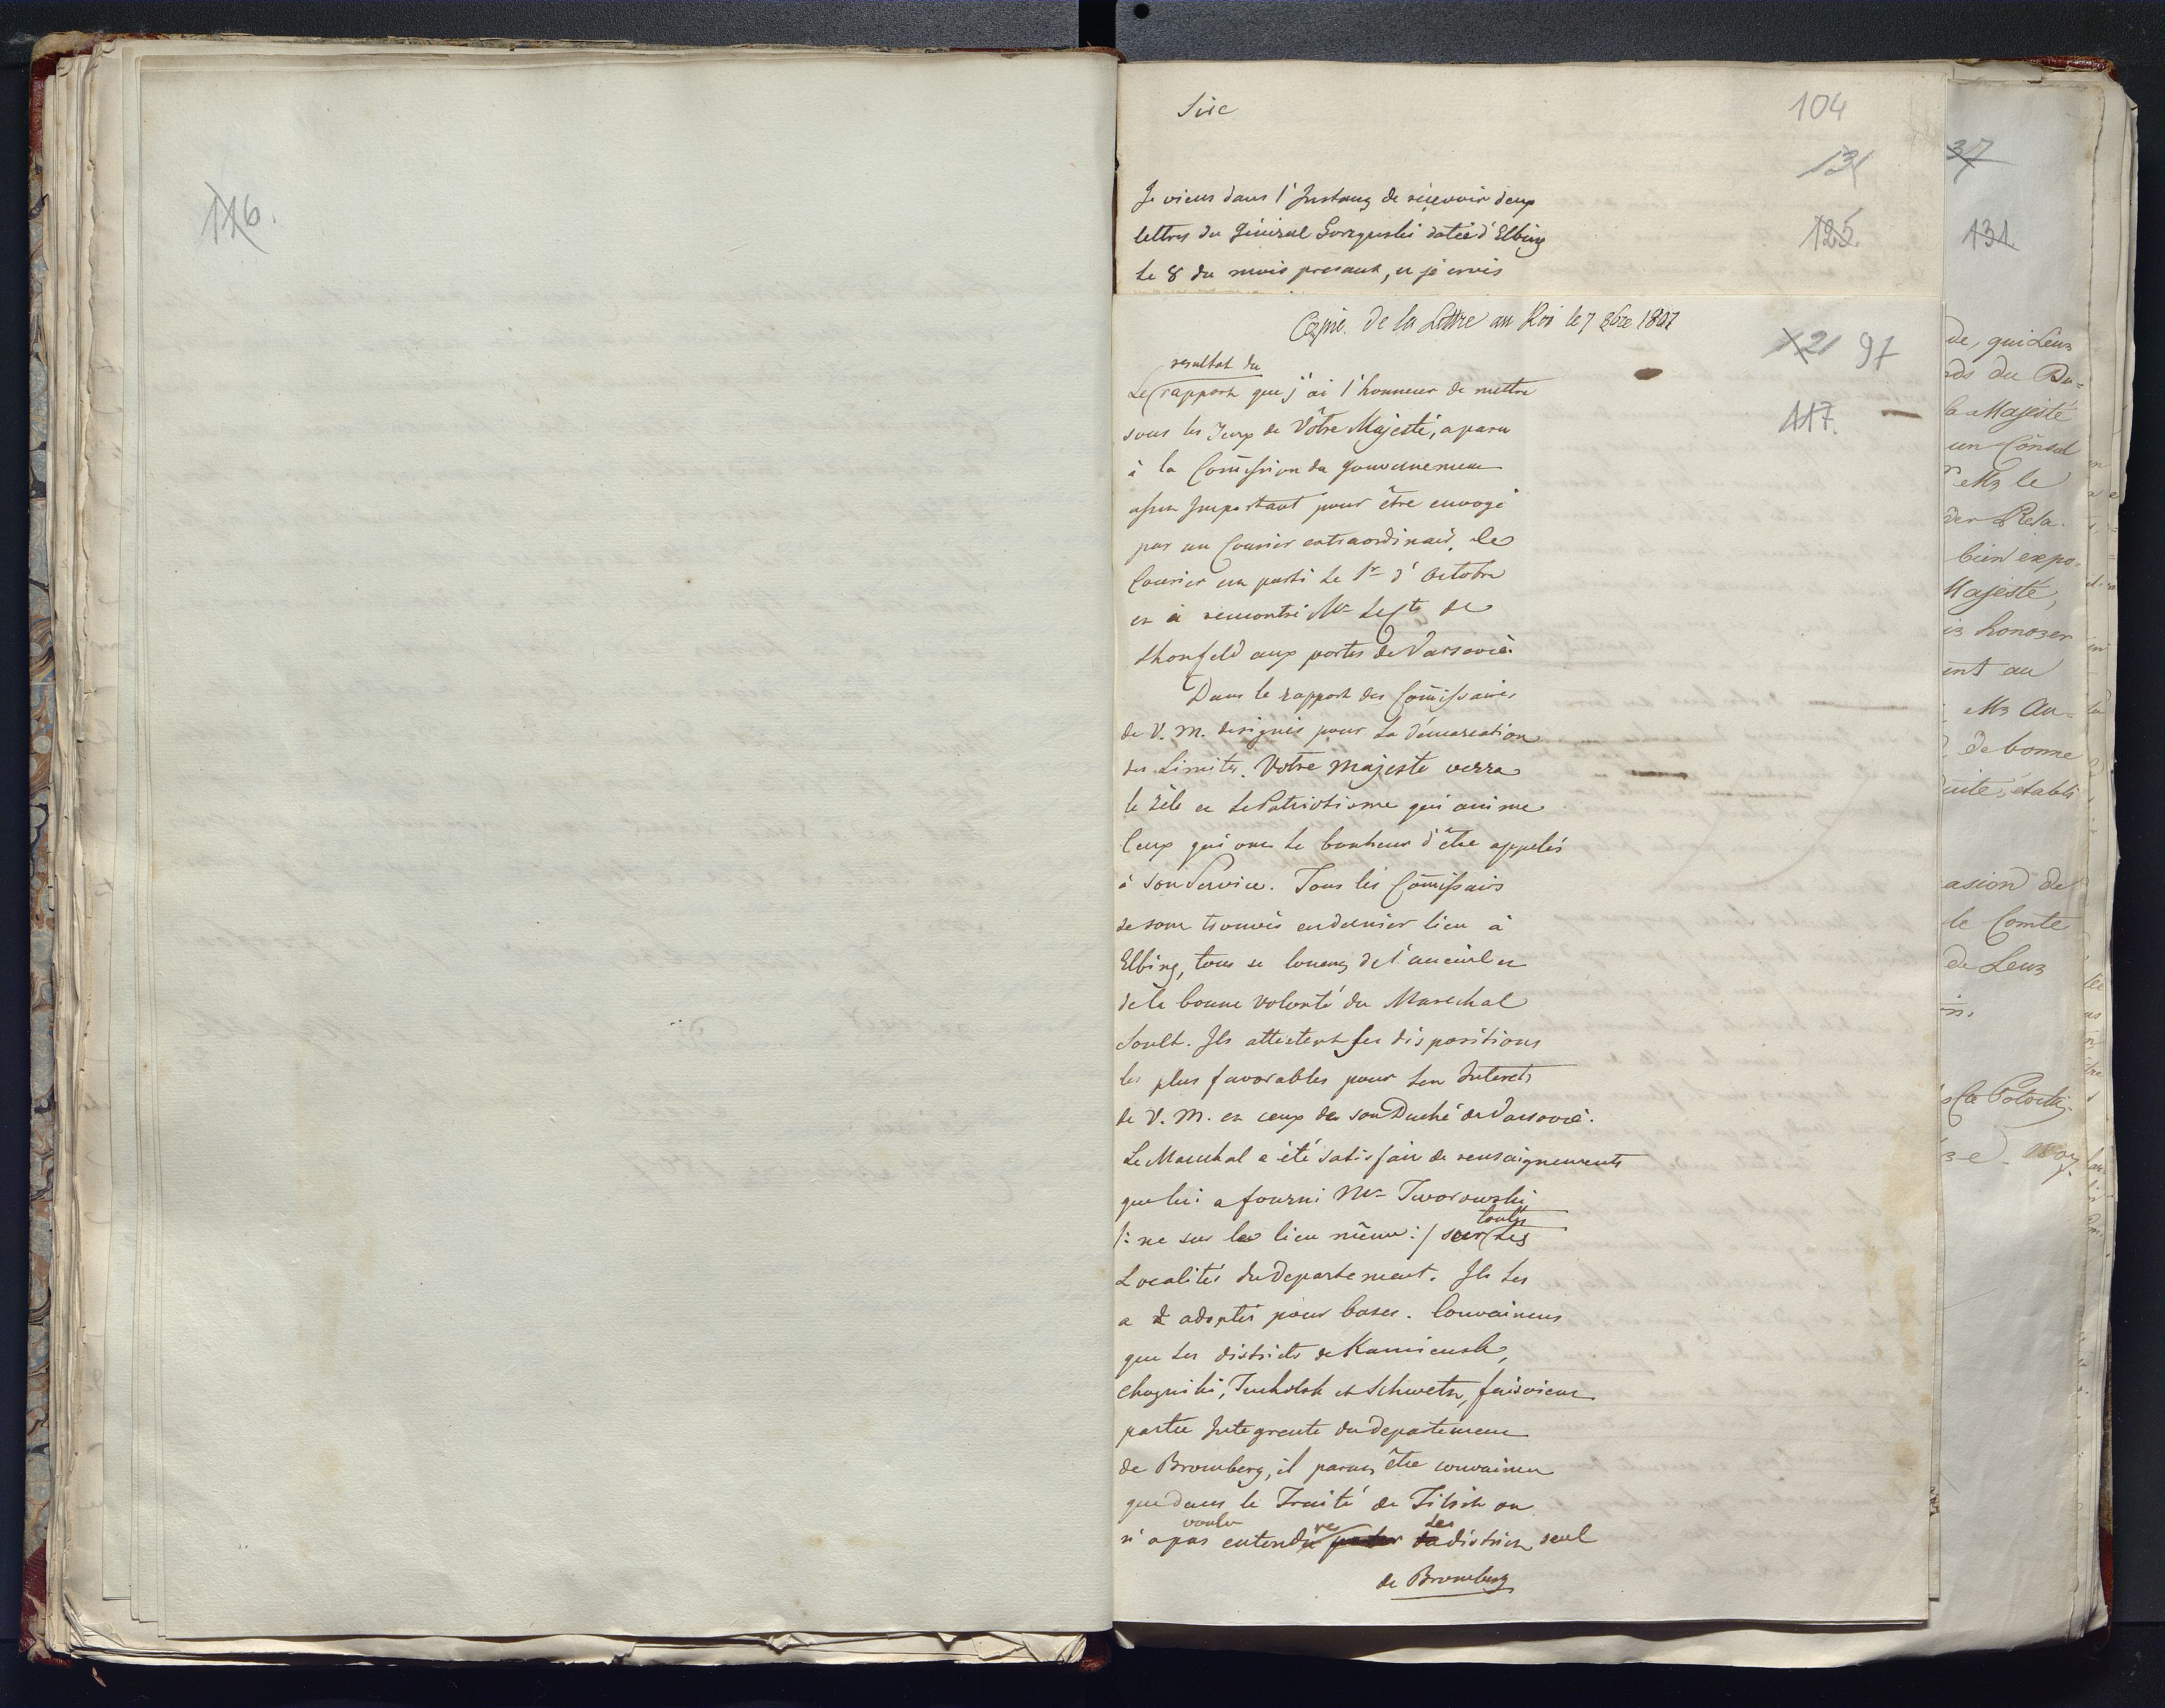 116.
Sire
104
131
Je viens dans l'Instang de récevoir deux
lettres du Général datée d'Elbing
125.
le 8 du mois presant, et je crois
Copie de la Lettre au Roi le 7 8bre 1807
121 97
resultat du
Le rapport que j'ai l'honneur de mettre
117.
sous les Jeux de Vôtre Majesté, a paru
à la Comission du Gouvernement
assez Important pour être envoyé
par un Courier extraordinair, le
Courier est parti le 1r d'Octobre
et à rencontré Mr le Cte de
Shonfeld aux portes de Varsovie.
Dans le rapport des Comissaires
de V. M. designés pour la démarcation
des Limites. Votre Majeste verra
le zèle et le Patriotisme qui anime
Ceux qui ont le bonheur d'être appelés
à son Service. Tous les Comissairs
se sont trouvés en dernier lieu à
Elbing, tous se louent de l'acceuil et
de la bonne volonté du Marechal
Soult. Ils attestent ses dispositions
les plus favorables pour les Interets
de V. M. et ceux de son Duché de Varsovie.
Le Marechal a été satisfait de rensaignements
que lui a fourni Mr Tworowski
toutes
/: né sur les lieu même :/ sur les
Localités du Departement. Il les
a adoptés pour bases. Convaincus
que les districts de Kamiensk,
Choyniki, Tucholsk et Schwetz, faisoient
partie Integrente du departement
de Bromberg, il parut être convaincu
que dans le Traité de Tilsit on
voulu re les
n'a pas entendu parler la district seul
de Bromberg
37
131
de, qui Leurs
rds du Du=
la Majesté
un Consul
r Mr le
der Resa.
bien expo=
Majesté,
is honorer
ent au
Mr Au=
de bonne
uité, établi
asion de
le Comte
de Leurs
s Cte Potocki
1807.